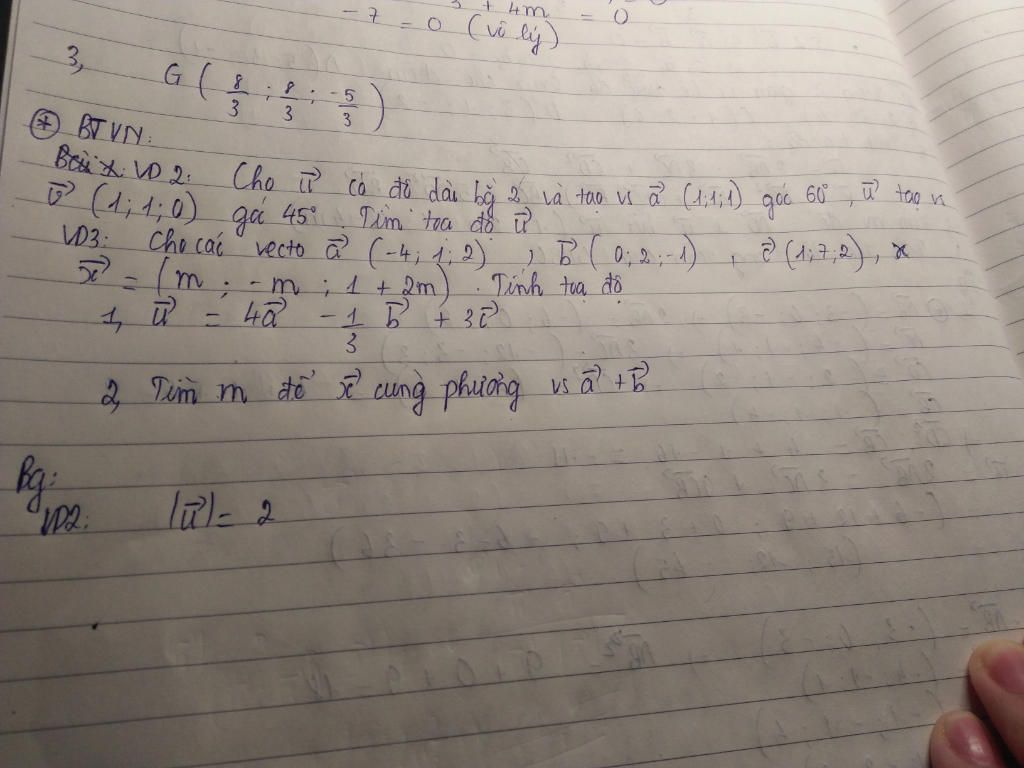 + 4m = 0
-7 = 0 (vô lý)
3, G ( 8/3 ; 8/3 ; -5/3 )
* BTVN:
VD 2: Cho u⃗ có độ dài bg 2 và tạo vs a⃗ (1;1;1) góc 60°, u⃗ tạo vs
v⃗ (1;1;0) góc 45°. Tìm toạ độ u⃗
VD3: Cho các vecto a⃗ (-4; 1; 2) , b⃗ (0; 2; -1) , c⃗ (1; 7; 2),
x⃗ = (m ; -m ; 1 + 2m) . Tính toạ độ
1, u⃗ = 4a⃗ - 1/3 b⃗ + 3c⃗
2, Tìm m để x⃗ cùng phương vs a⃗ + b⃗
Bg:
VD2: |u⃗| = 2